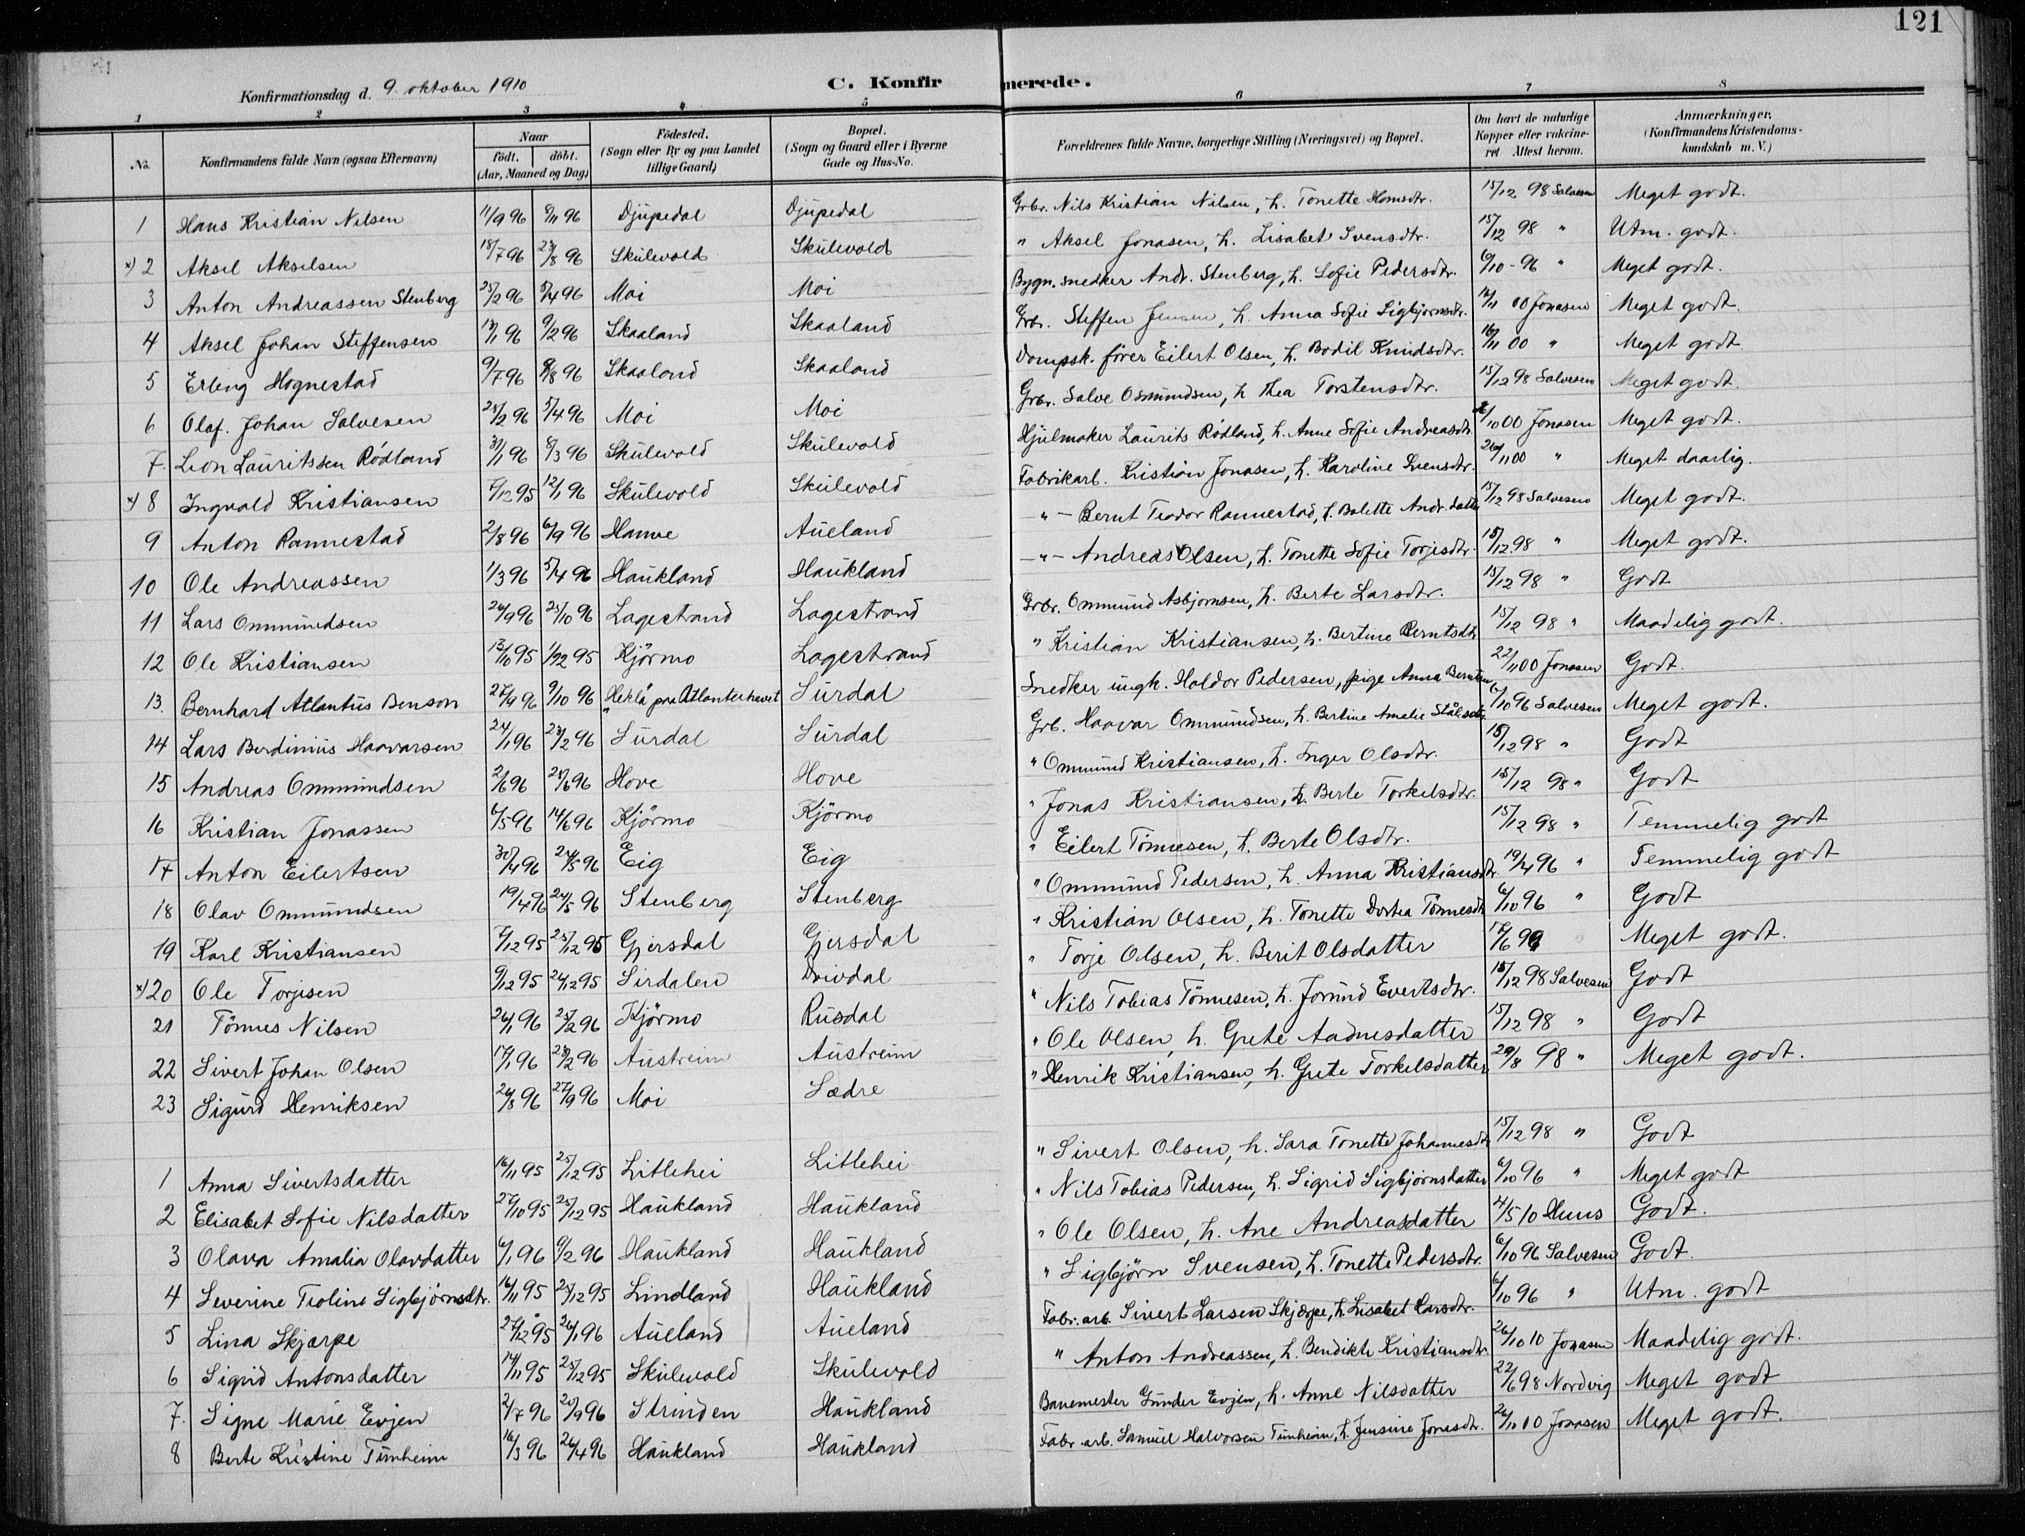 121
Konfirmationsdag d. 9. oktober 1910
C. Konfirmerede.
1 2 3 4 5 6 7 8
No. Konfirmandens fulde Navn (ogsaa Efternavn) Naar födt. döbt. (Aar, Maaned og Dag) Födested. (Sogn eller By og paa Landet tillige Gaard) Bopæl. (Sogn og Gaard eller i Byerne Gade og Hus-No. Forældrenes fulde Navne, borgerlige Stilling (Næringsvei) og Bopæl. Om havt de naturlige Kopper eller vakcineret Attest herom. Anmærkninger. (Konfirmandens Kristendomskundskab m. V.)
1 Hans Kristian Nilsen 11/9 96 8/11 96 Djupedal Djupedal Grbr. Nils Kristian Nilsen, h. Tonette Hansdtr. 15/12 98 Salvesen Meget godt.
x) 2 Aksel Akselsen 18/7 96 23/8 96 Skulevold Skulevold " Aksel Jonasen, h. Lisabet Svensdtr. 15/12 98 " Utm. godt.
3 Anton Andreassen Stenberg 25/2 96 5/4 96 Moi Moi Bygn. snedker Andr. Stenberg, h. Sofie Pedersdtr. 6/10 - 96 " Meget godt.
4 Aksel Johan Steffensen 13/1 96 9/2 96 Skaaland Skaaland Grbr. Steffen Jensen, h. Anna Sofie Sigbjørnsdtr. 16/11 00 Jonasen Meget godt.
5 Erling Hognestad 9/7 96 9/8 96 Skaaland Skaaland Dampsk. fører Eilert Olsen, h. Bodil Knudsdtr. 16/11 00 " Meget godt
6 Olaf. Johan Salvesen 25/2 96 5/4 96 Moi Moi Grbr. Salve Osmundsen, h Thea Torstensdtr. 15/12 98 Salvesen Meget godt.
7. Leon Lauritssen Rødland 31/1 96 8/3 96 Skulevold Skulevold Hjulmaker Laurits Rødland, h. Anne Sofie Andreasdtr /10 00 Jonasen Meget godt.
x) 8 Ingvald Kristiansen 9/12 95 12/1 96 Skulevold Skulevold Fabrikarb. Kristian Jonasen, h. Karoline Svensdtr. 26/11 00 " Meget daarlig.
9 Anton Rannestad 2/8 96 6/9 96 Hamre Aueland - " - Bernt Teodor Rannestad, h. Bolette Andr.datter 15/12 98 Salvesen Meget godt.
10 Ole Andreassen 1/3 96 5/4 96 Haukland Haukland - " - Andreas Olsen, h. Tonette Sofie Torjesdtr. 15/12 98 " Meget godt.
11 Lars Ommundsen 26/9 96 25/10 96 Lagestrand Lagestrand Grbr. Ommund Asbjørnsen, h. Berte Larsdtr. 15/12 98 " Godt
12 Ole Kristiansen 13/10 95 1/12 95 Kjörmo Lagestrand " Kristian Kristiansen, h. Bertine Berntsdtr 15/12 98 " Maadelig godt.
13. Bernhard Atlantus Benson 27/9 96 9/10 96 "Hekla" paa Atlanterhavet Surdal Snedker ungk. Haldor Pedersen, pige Anna 22/11 00 Jonasen Godt.
14 Lars Berdinius Haavarsen 24/1 96 23/2 96 Surdal Surdal Grb. Haavar Ommundsen, h. Bertine Amalie Stålsdtr. 6/10 96 Salvesen Meget godt.
15 Andreas Ommundsen 2/6 96 28/6 96 Hove Hove " Ommund Kristiansen, h. Inger Olsdtr. 15/12 98 " Godt
16 Kristian Jonassen 6/5 96 14/6 96 Kjörmo Kjörmo " Jonas Kristiansen, h. Berte Torkelsdtr. 15/12 98 " Godt
17 Anton Eilertsen 30/4 96 24/5 96 Eig Eig " Eilert Tönnesen, h. Berte Olsdtr. 15/12 98 " Temmelig godt
18 Olav Ommundsen 19/4 96 24/5 96 Stenberg Stenberg " Ommund Pedersen, h. Anna Kristiansdtr. 19/4 96 " Temmelig godt
19 Karl Kristiansen 7/12 95 25/12 95 Gjersdal Gjersdal " Kristian Olsen, h. Tonette Dortea Tønnesdtr 6/10 96 " Godt
x) 20 Ole Torjesen 9/12 95 26/12 95 Sirdalen Drivdal " Torje Olsen, h. Berit Olsdatter 19/6 99 Meget godt.
21 Tönnes Nilsen 26/1 96 23/2 96 Kjörmo Rusdal " Nils Tobias Tönnesen, h. Jorund Evertsdtr. 15/12 98 Salvesen Godt
22 Sivert Johan Olsen 17/1 96 23/2 96 Austreim Austreim " Ole Olsen, h. Grete Aadnesdatter 15/12 98 " Godt
23 Sigurd Henriksen 26/8 96 27/9 96 Moi Sædre " Henrik Kristiansen, h. Grete Torkelsdatter 29/8 98 " Meget godt.
1 Anna Sivertsdatter 16/11 95 25/12 95 Litlehei Litlehei " Sivert Olsen, h. Sara Tonette Johannesdtr 15/12 98 " Godt
2 Elisabet Sofie Nilsdatter 27/10 95 25/12 95 Haukland Haukland " Nils Tobias Pedersen, h. Sigrid Sigbjørnsdatter 6/10 96 " Meget godt
3 Olava Amalia Olavdatter 6/1 96 9/2 96 Haukland Haukland " Ole Olsen, h. Ane Andreasdatter 4/5 10 Huus Godt.
4 Severine Teoline Sigbjörnsdtr. 16/11 95 25/12 95 Lindland Haukland " Sigbjörn Svensen, h. Tonette Pedersdtr. 6/10 96 Salvesen Godt.
5 Lina Skjærpe 27/12 95 26/1 96 Aueland Aueland Fabr. arb. Sivert Larsen Skjærpe, h. Lisabet Larsdtr. 6/10 96 " Utm. godt
6 Sigrid Antonsdatter 14/11 95 25/12 95 Skulevold Skulevold " Anton Andreassen, h. Bendikte Kristiansdtr 26/10 10 Jonasen Maadelig godt.
7. Signe Marie Evjen 2/7 96 20/9 96 Strinden Haukland Banemester Gunder Evjen, h. Anne Nilsdatter 22/6 98 Nordvig Meget godt
8 Berte Kristine Tunheim 16/3 96 26/4 96 Haukland Haukland Fabr. arb. Samuel Halvorsen Tunheim, h. Jensine Jonasdtr. 26/10 10 Jonasen Meget godt.